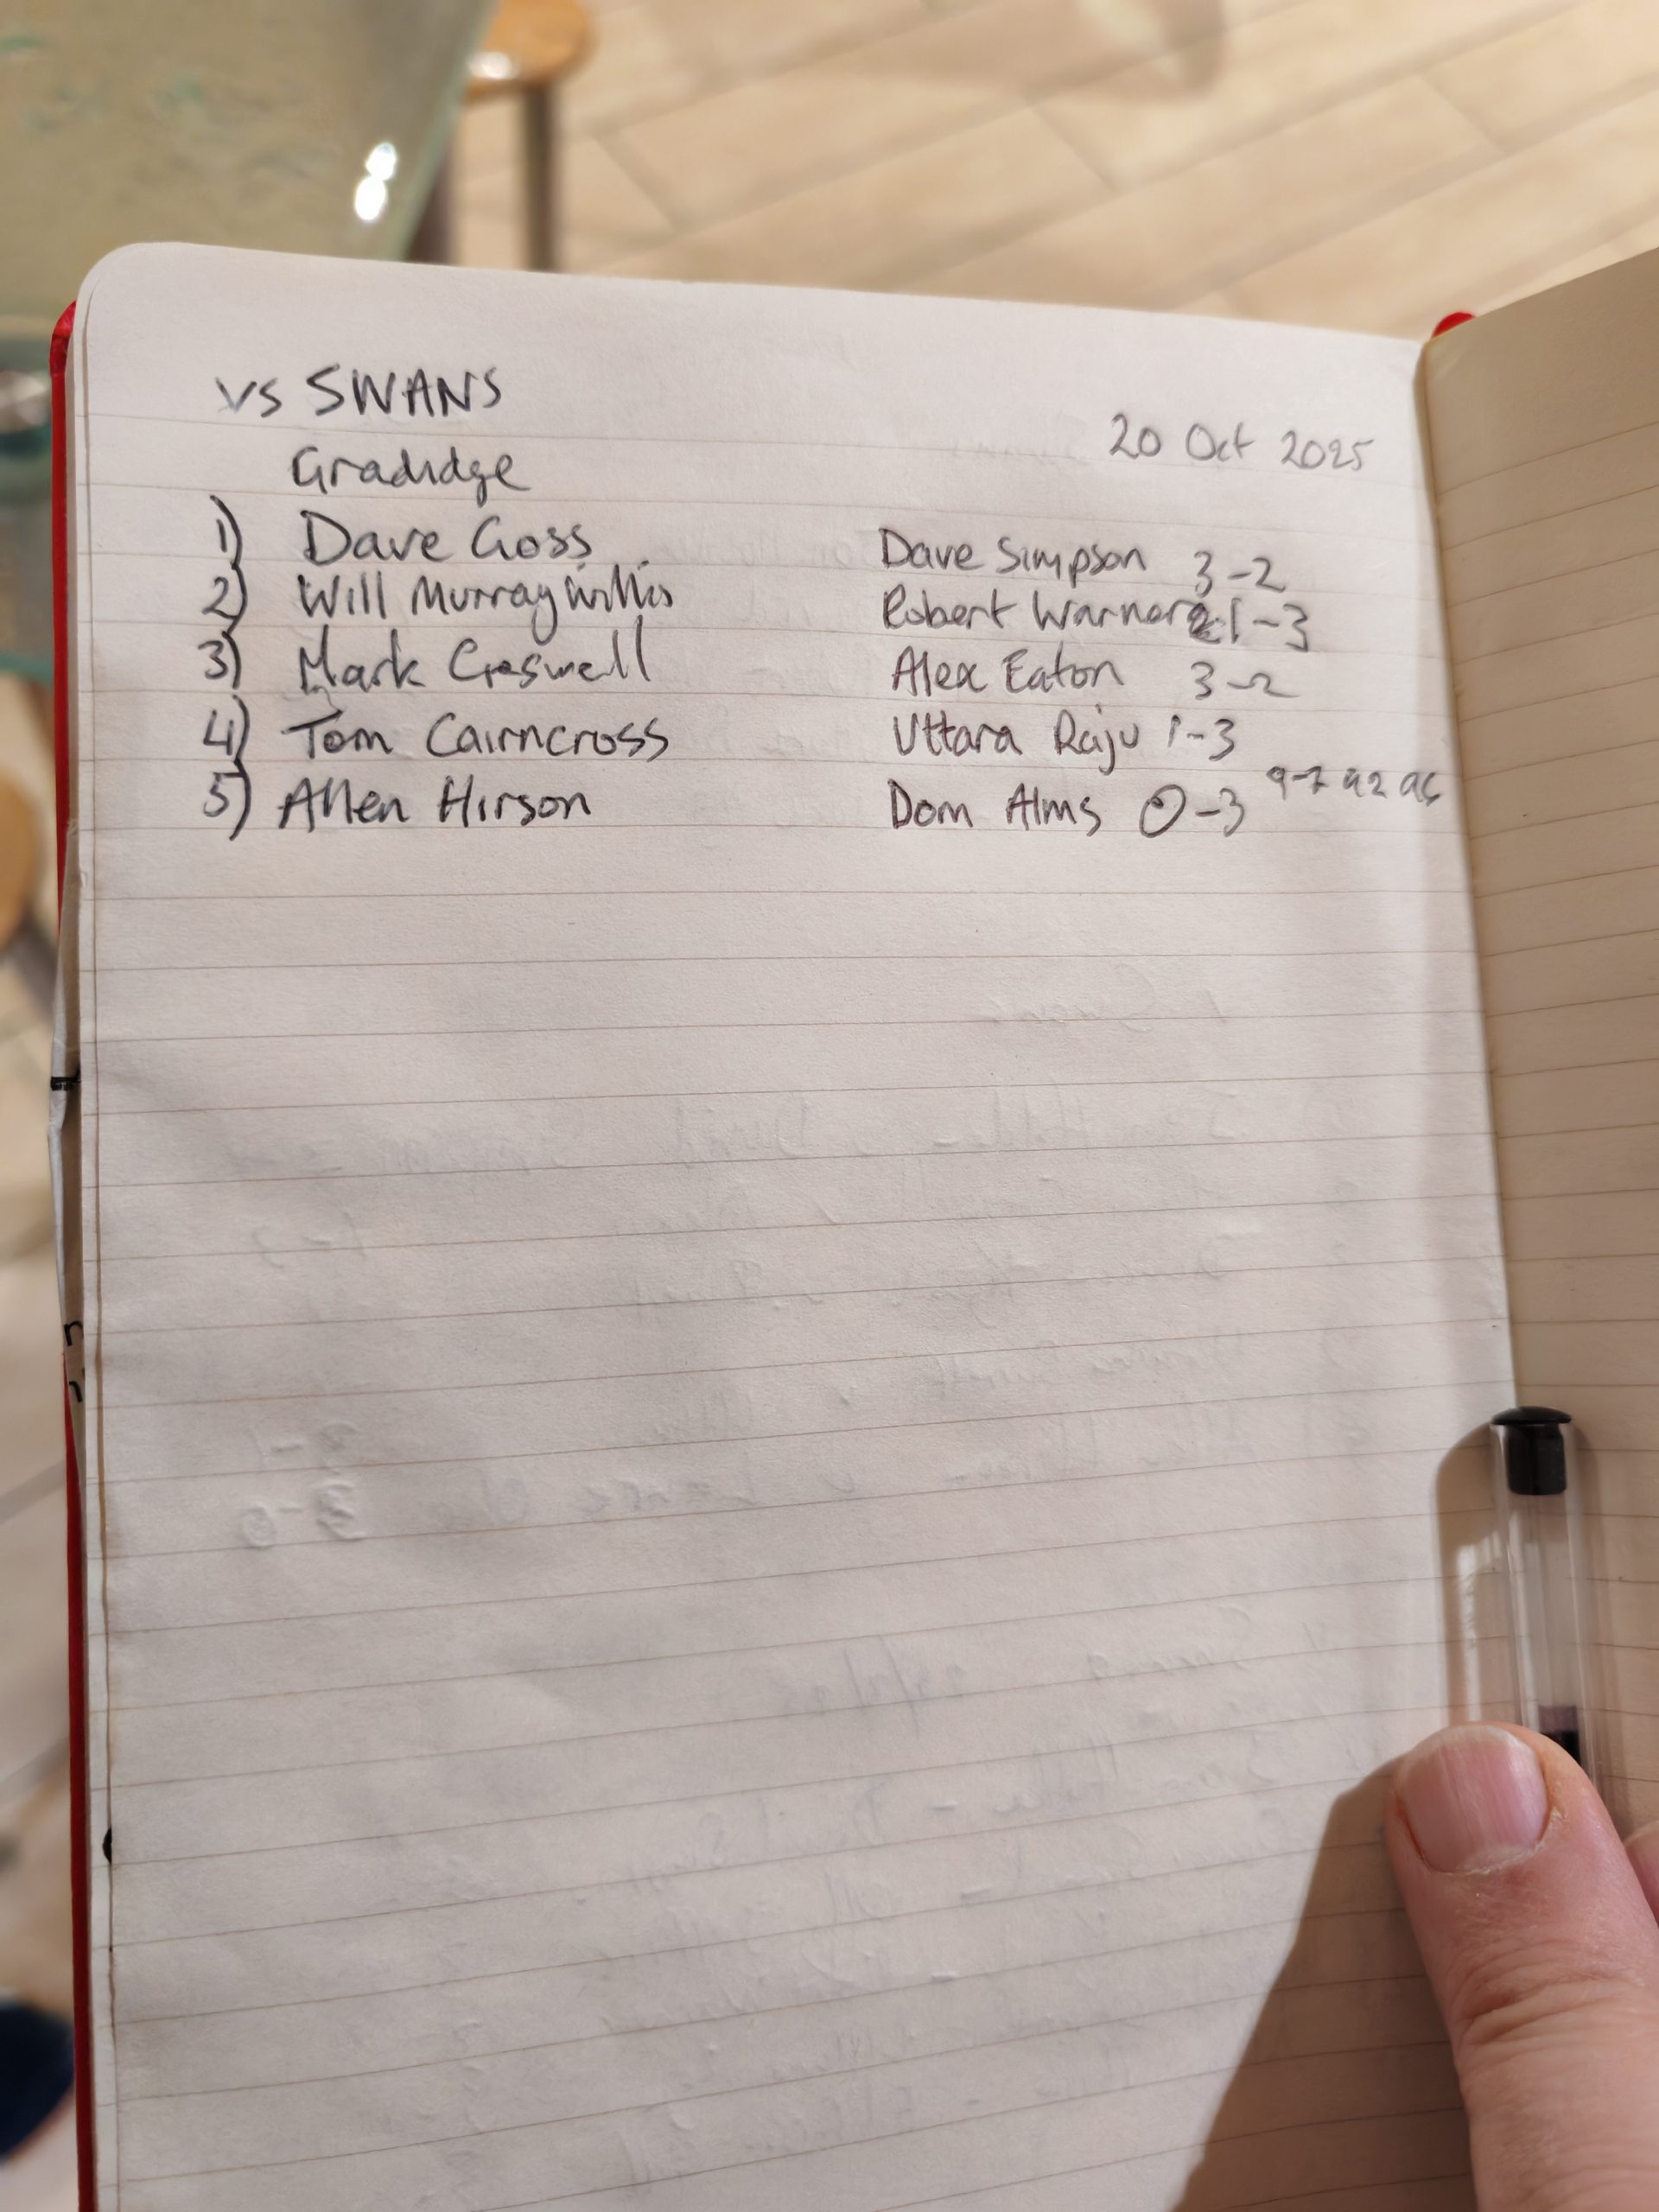 vs SWANS
20 Oct 2025
Gradidge
1) Dave Goss Dave Simpson 3-2
2) Will Murray Willis Robert Warner 1-3
3) Mark Creswell Alex Eaton 3-2
4) Tom Cairncross Uttara Raju 1-3
5) Allen Hirson Dom Alms 0-3 9-7 92 96